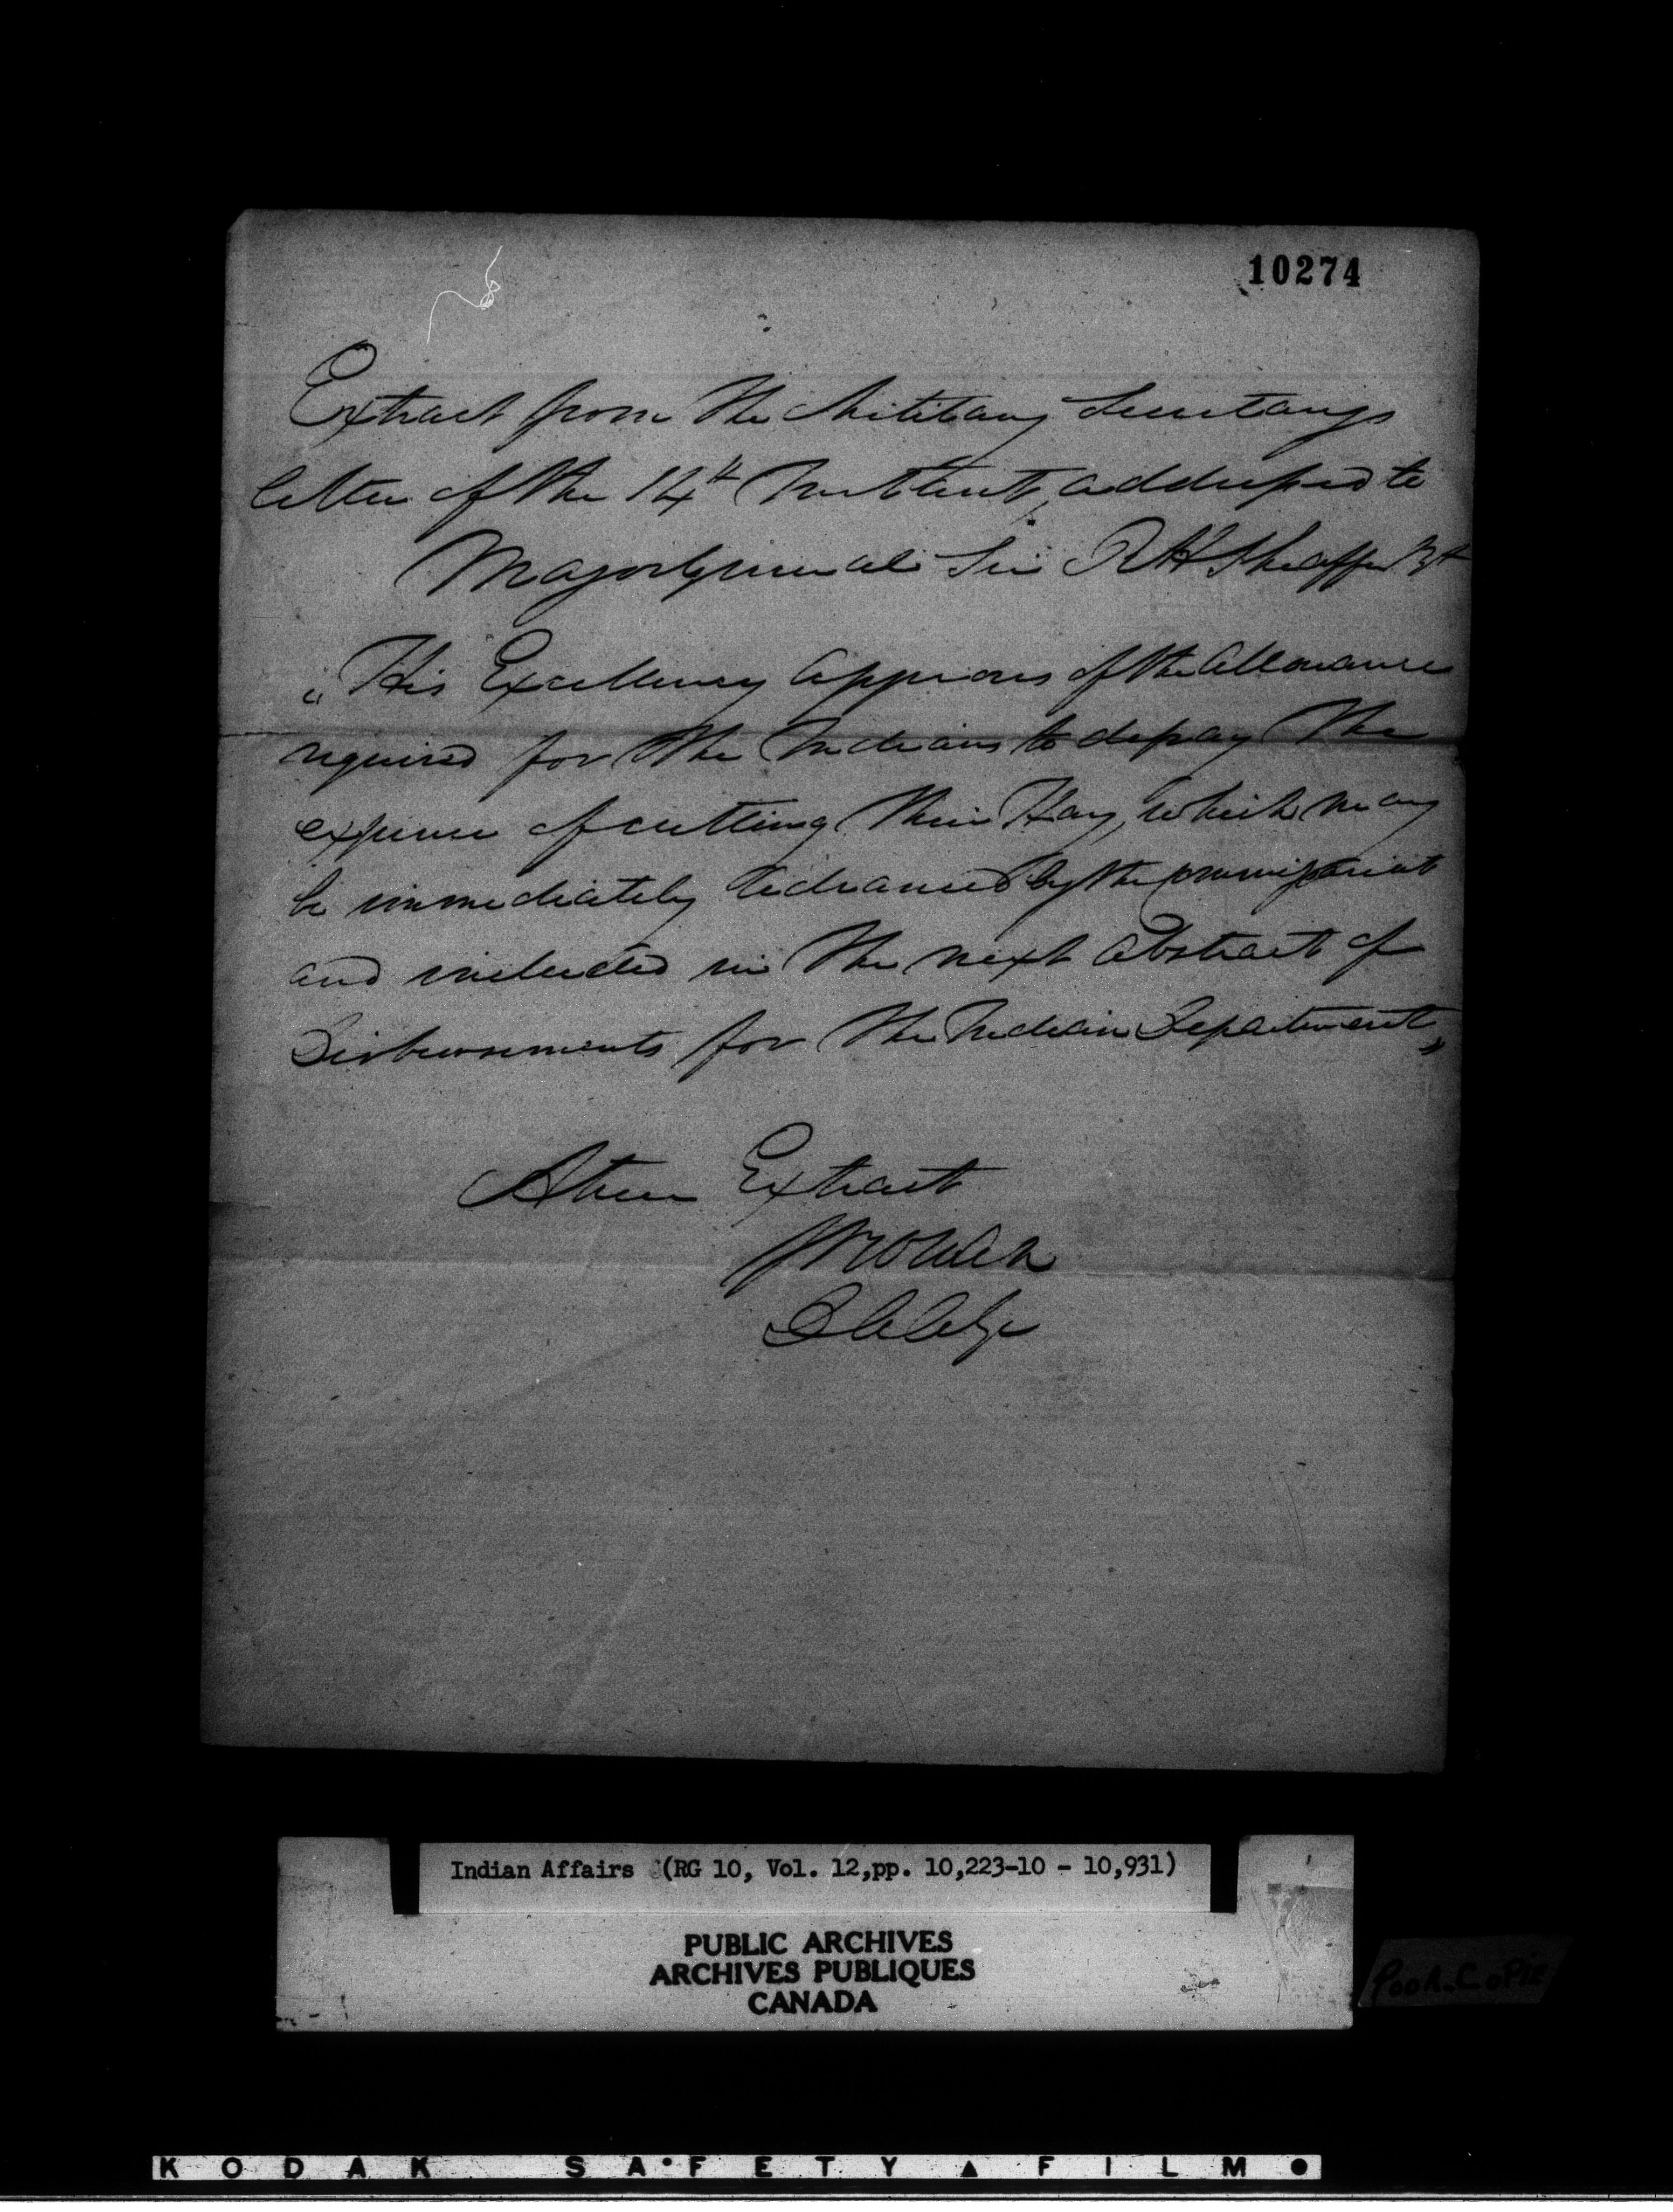 10274
Extract from the Military Secretarys
letter of the 14th Instant, addressed to
Major General Sir R H Sheaffe Bt
"His Excellency approves of the allowance
required for the Indians to defray the
expense of cutting their Hay, which may
be immediately advanced by the commissariat
and included in the next abstract of
Disbursements for the Indian Department"
A true Extract
D C Genl
Indian Affairs (RG 10, Vol. 12,pp. 10,223-10 - 10,931)
PUBLIC ARCHIVES
ARCHIVES PUBLIQUES
CANADA
Poor Copie
KODAK SAFETY FILM